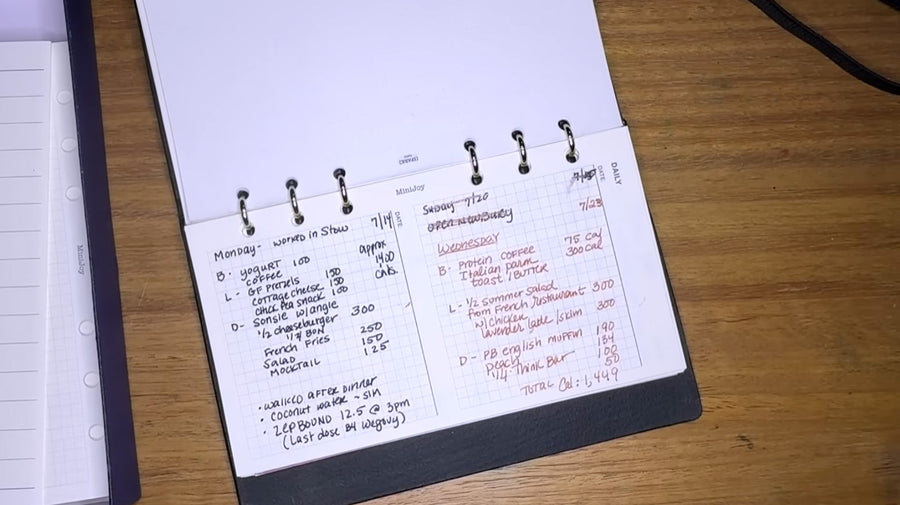 MiniJoy
DATE
Monday - worked in Stow 7/14
approx
1400
cals.
B - yogurt 100
coffee
L - GF Pretzels 150
cottage cheese 150
chick pea snack 100
D - Sonsie w/angie
1/2 cheeseburger 300
French Fries 250
Salad 150
Mocktail 125
• walked after dinner
• coconut water - Sm
• Zepbound 12.5 @ 3pm
(Last dose B4 Wegovy)
DAILY
DATE
Sunday 7/20
7/23
Wednesday
B - Protein coffee 75 cal
Italian parm 300 cal
toast/butter
L - 1/2 summer salad 300
from French restaurant
w/chicken
lavender latte/skim 300
D - PB english muffin 190
peach 134
1/4 Think Bar 100
50
Total Cal: 1,449
MiniJoy